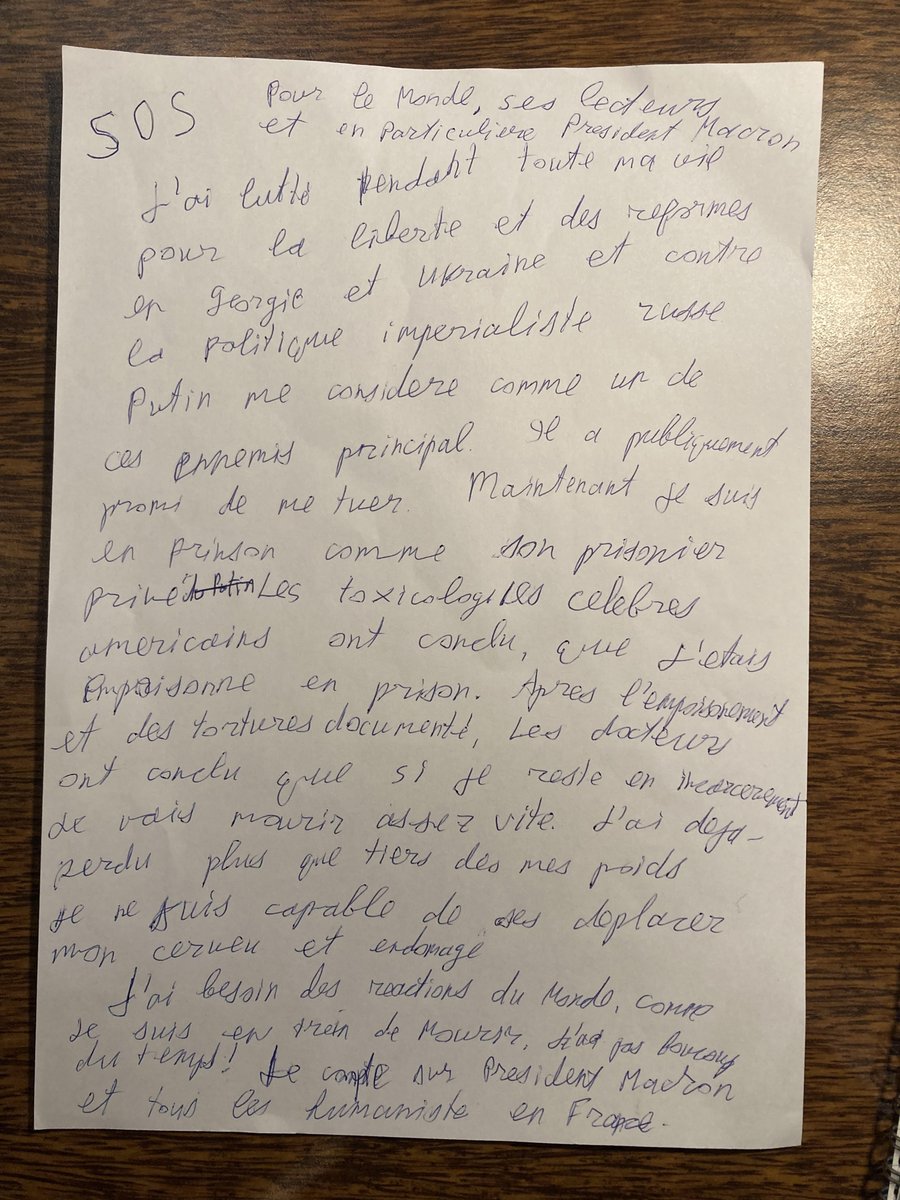 SOS
Pour le Monde, ses lecteurs
et en particuliere President Macron
J'ai lutté pendant toute ma vie
pour la liberte et des reformes
en Georgie et Ukraine et contre
la politique imperialiste russe
Putin me considere comme un de
ces ennemis principal. Il a publiquement
promi de me tuer. Maintenant je suis
en prinson comme son prisonier
privé Les toxicologues celebres
americains ont conclu, que j'etais
empoisonne en prison. Apres l'empoisonement
et des tortures documenté, Les docteurs
ont conclu que si je reste en incarcerement
je vais mourir assez vite. J'ai deja
perdu plus que tiers des mes poids
je ne suis capable de ses deplacer
mon cerveu et endomagé
J'ai besoin des reactions du Monde, comme
je suis en trein de mourir, j'ai pas boucoup
du temps! Je compte sur President Macron
et tous les humaniste en France.